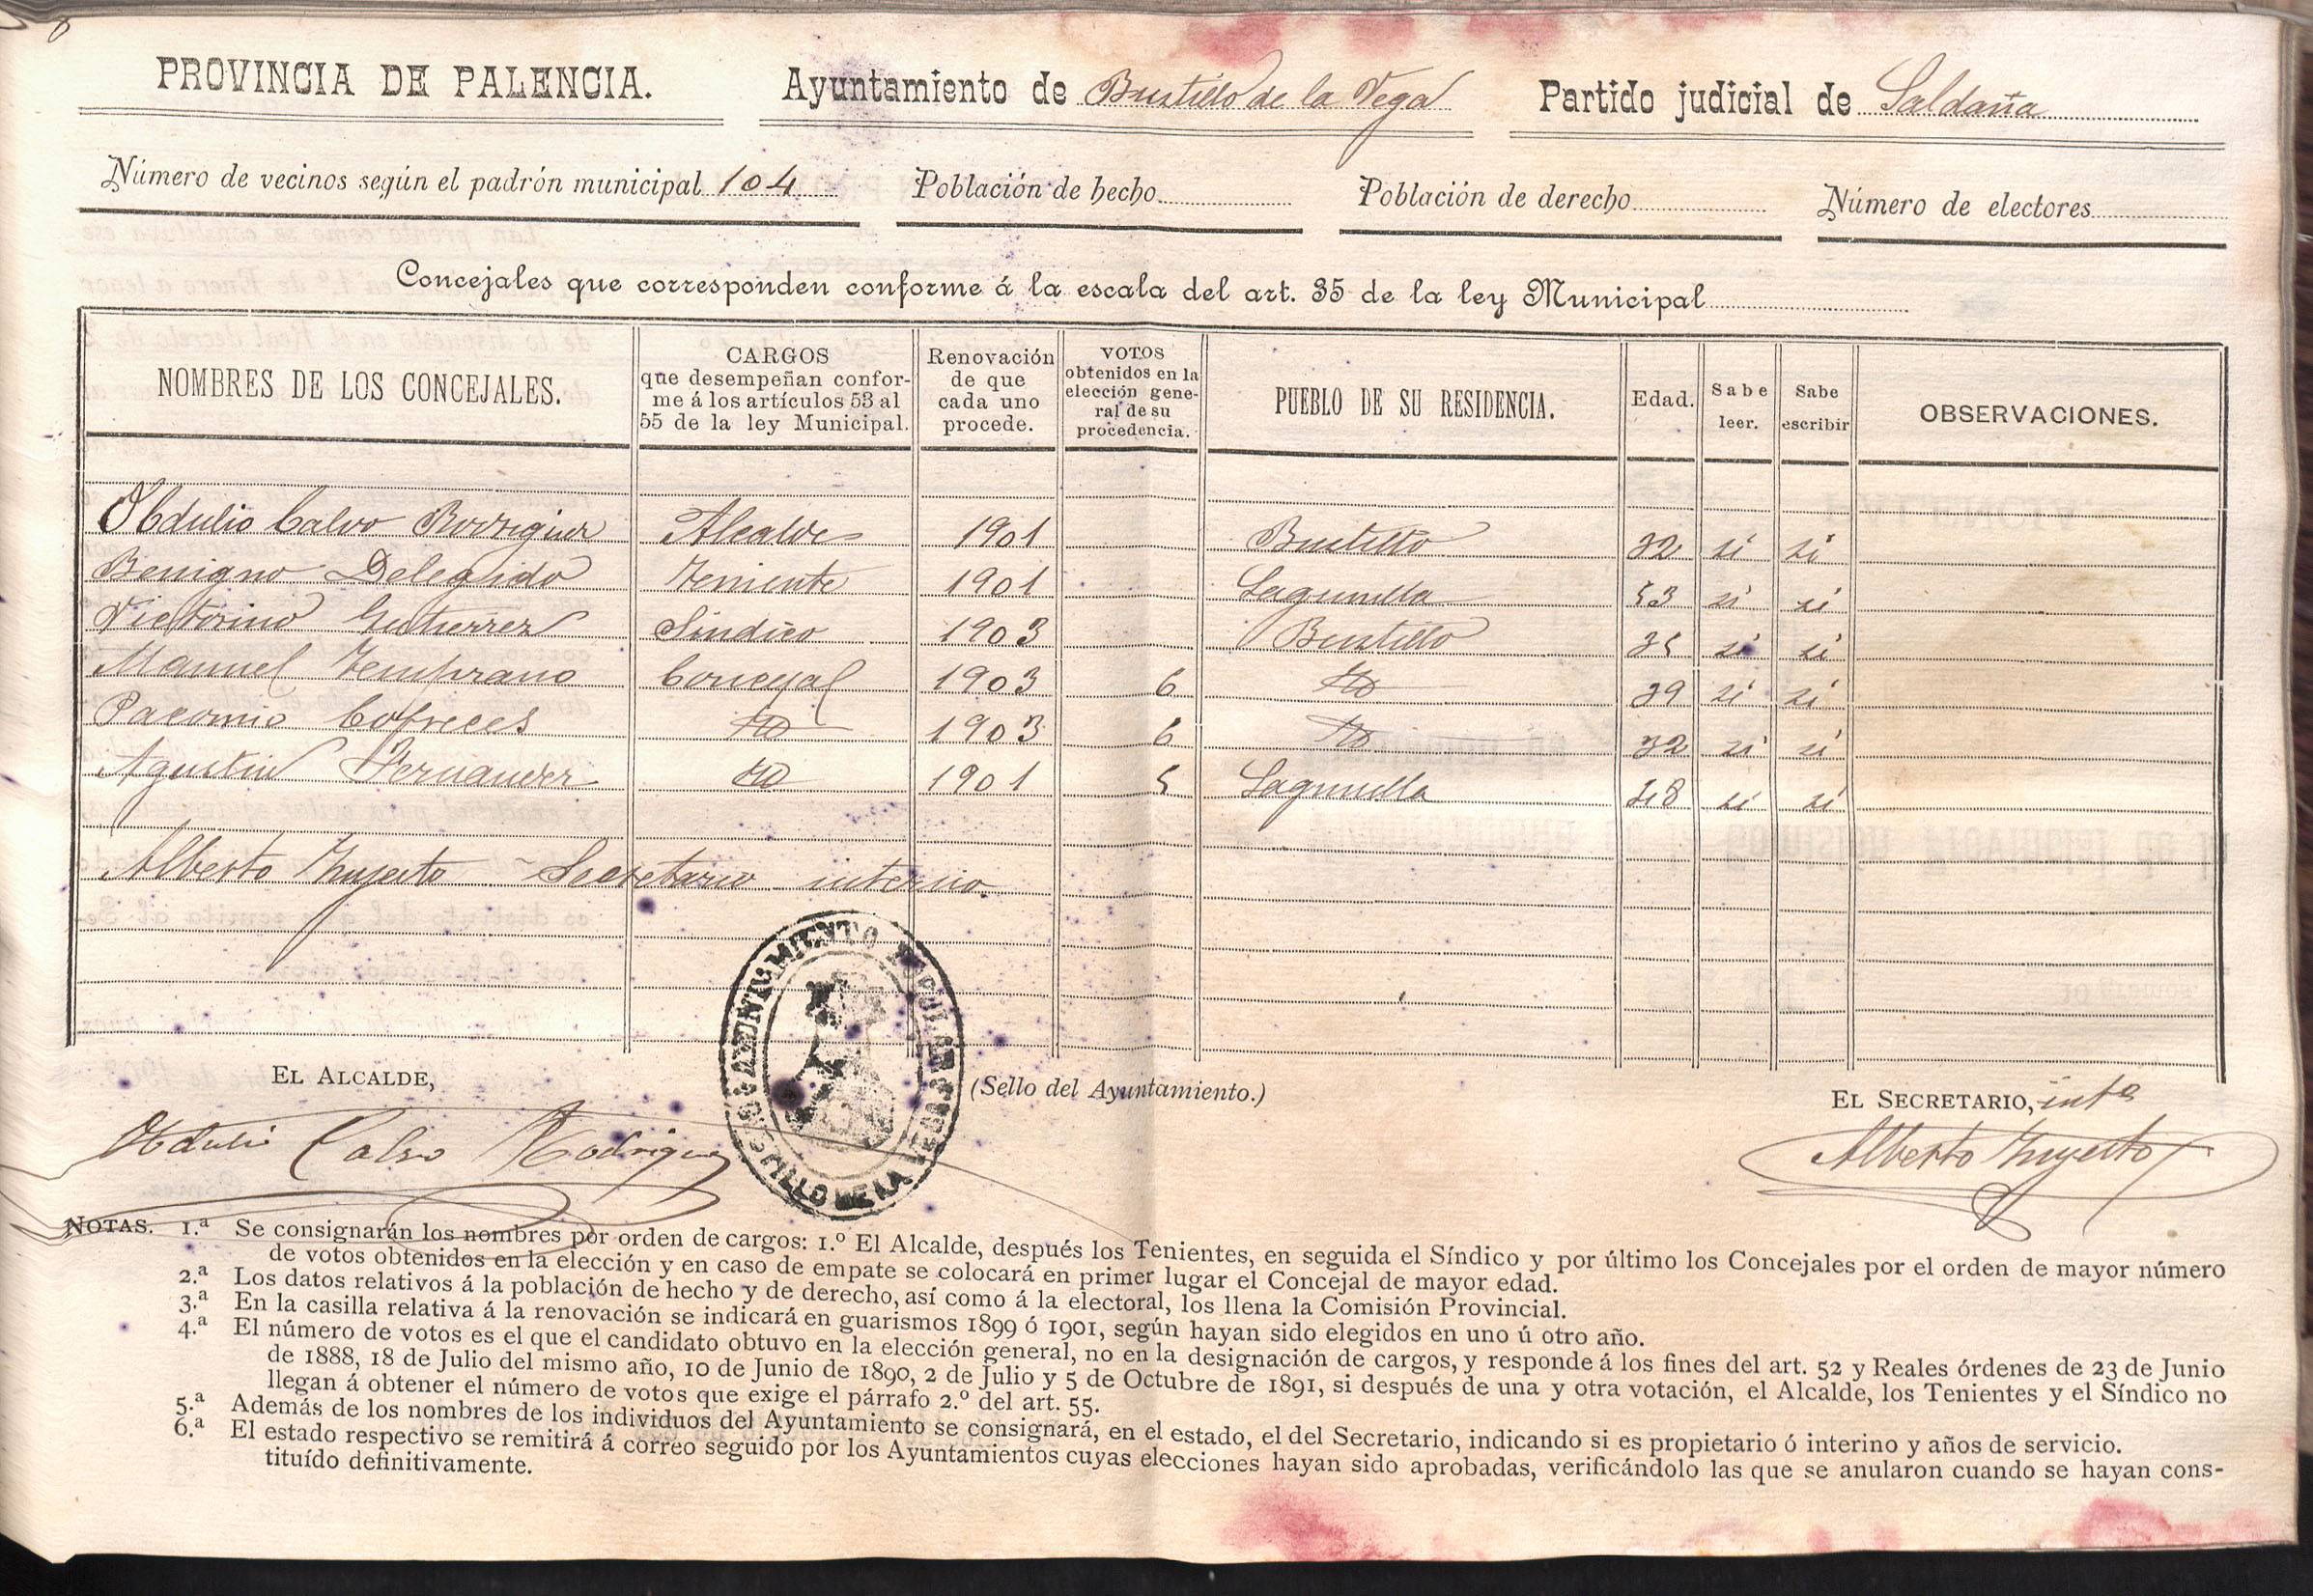 PROVINCIA DE PALENCIA. Ayuntamiento de Bustillo de la Vega Partido judicial de Saldaña
Número de vecinos según el padrón municipal 104 Población de hecho Población de derecho Número de electores
Concejales que corresponden conforme á la escala del art. 35 de la ley Municipal
NOMBRES DE LOS CONCEJALES. CARGOS que desempeñan confor- me á los artículos 53 al 55 de la ley Municipal. Renovación de que cada uno procede. VOTOS obtenidos en la elección gene- ral de su procedencia. PUEBLO DE SU RESIDENCIA. Edad. Sabe leer. Sabe escribir OBSERVACIONES.
Obdulio Calvo Rodriguez Alcalde 1901 Bustillo 32 si si
Benigno Delegido Teniente 1901 Lagunilla 53 si si
Victorino Gutierrez Sindico 1903 Bustillo 35 si si
Manuel Temprano Concejal 1903 6 39 si si
Pacomio Cofreces 1903 6 32 si si
Agustin Fernandez 1901 5 Lagunilla 48 si si
Alberto Secretario interino.
AYUNTAMIENTO
BUSTILLO DE LA VEGA
EL ALCALDE, (Sello del Ayuntamiento.) EL SECRETARIO, intº
Obdulio Calvo Rodriguez Alberto
NOTAS. 1.ª Se consignarán los nombres por orden de cargos: 1.º El Alcalde, después los Tenientes, en seguida el Síndico y por último los Concejales por el orden de mayor número
de votos obtenidos en la elección y en caso de empate se colocará en primer lugar el Concejal de mayor edad.
2.ª Los datos relativos á la población de hecho y de derecho, así como á la electoral, los llena la Comisión Provincial.
3.ª En la casilla relativa á la renovación se indicará en guarismos 1899 ó 1901, según hayan sido elegidos en uno ú otro año.
4.ª El número de votos es el que el candidato obtuvo en la elección general, no en la designación de cargos, y responde á los fines del art. 52 y Reales órdenes de 23 de Junio
de 1888, 18 de Julio del mismo año, 10 de Junio de 1890, 2 de Julio y 5 de Octubre de 1891, si después de una y otra votación, el Alcalde, los Tenientes y el Síndico no
llegan á obtener el número de votos que exige el párrafo 2.º del art. 55.
5.ª Además de los nombres de los individuos del Ayuntamiento se consignará, en el estado, el del Secretario, indicando si es propietario ó interino y años de servicio.
6.ª El estado respectivo se remitirá á correo seguido por los Ayuntamientos cuyas elecciones hayan sido aprobadas, verificándolo las que se anularon cuando se hayan cons-
tituído definitivamente.